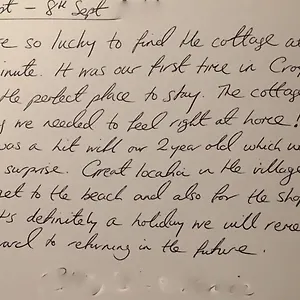 pt - 8th Sept
re so lucky to find the cottage at
minute. It was our first time in Cro
the perfect place to stay. The cottag
g we needed to feel right at home!
was a hit with our 2 year old which w
surprise. Great location in the village
et to the beach and also for the shop
t's definitely a holiday we will reme
ward to returning in the future.